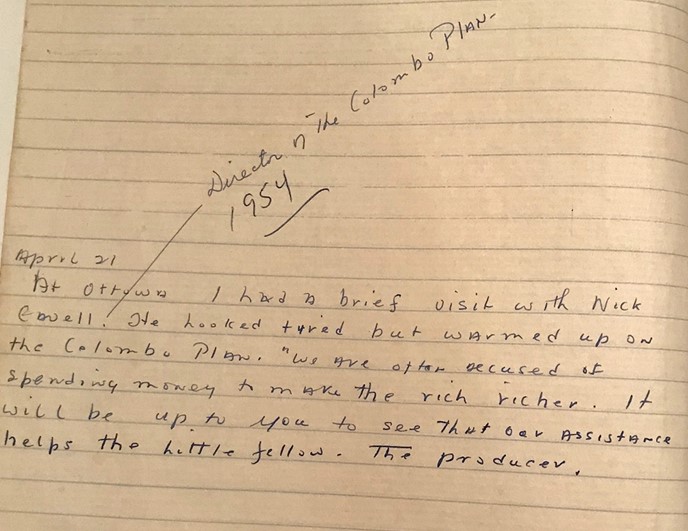 Director of The Colombo PLAN-
1954
April 21
At Ottawa I had a brief visit with Nick
Cavell. He looked tyred but warmed up on
the Colombo Plan. "We are often accused of
spending money to make the rich richer. It
will be up to you to see that our assistance
helps the little fellow. The producer.